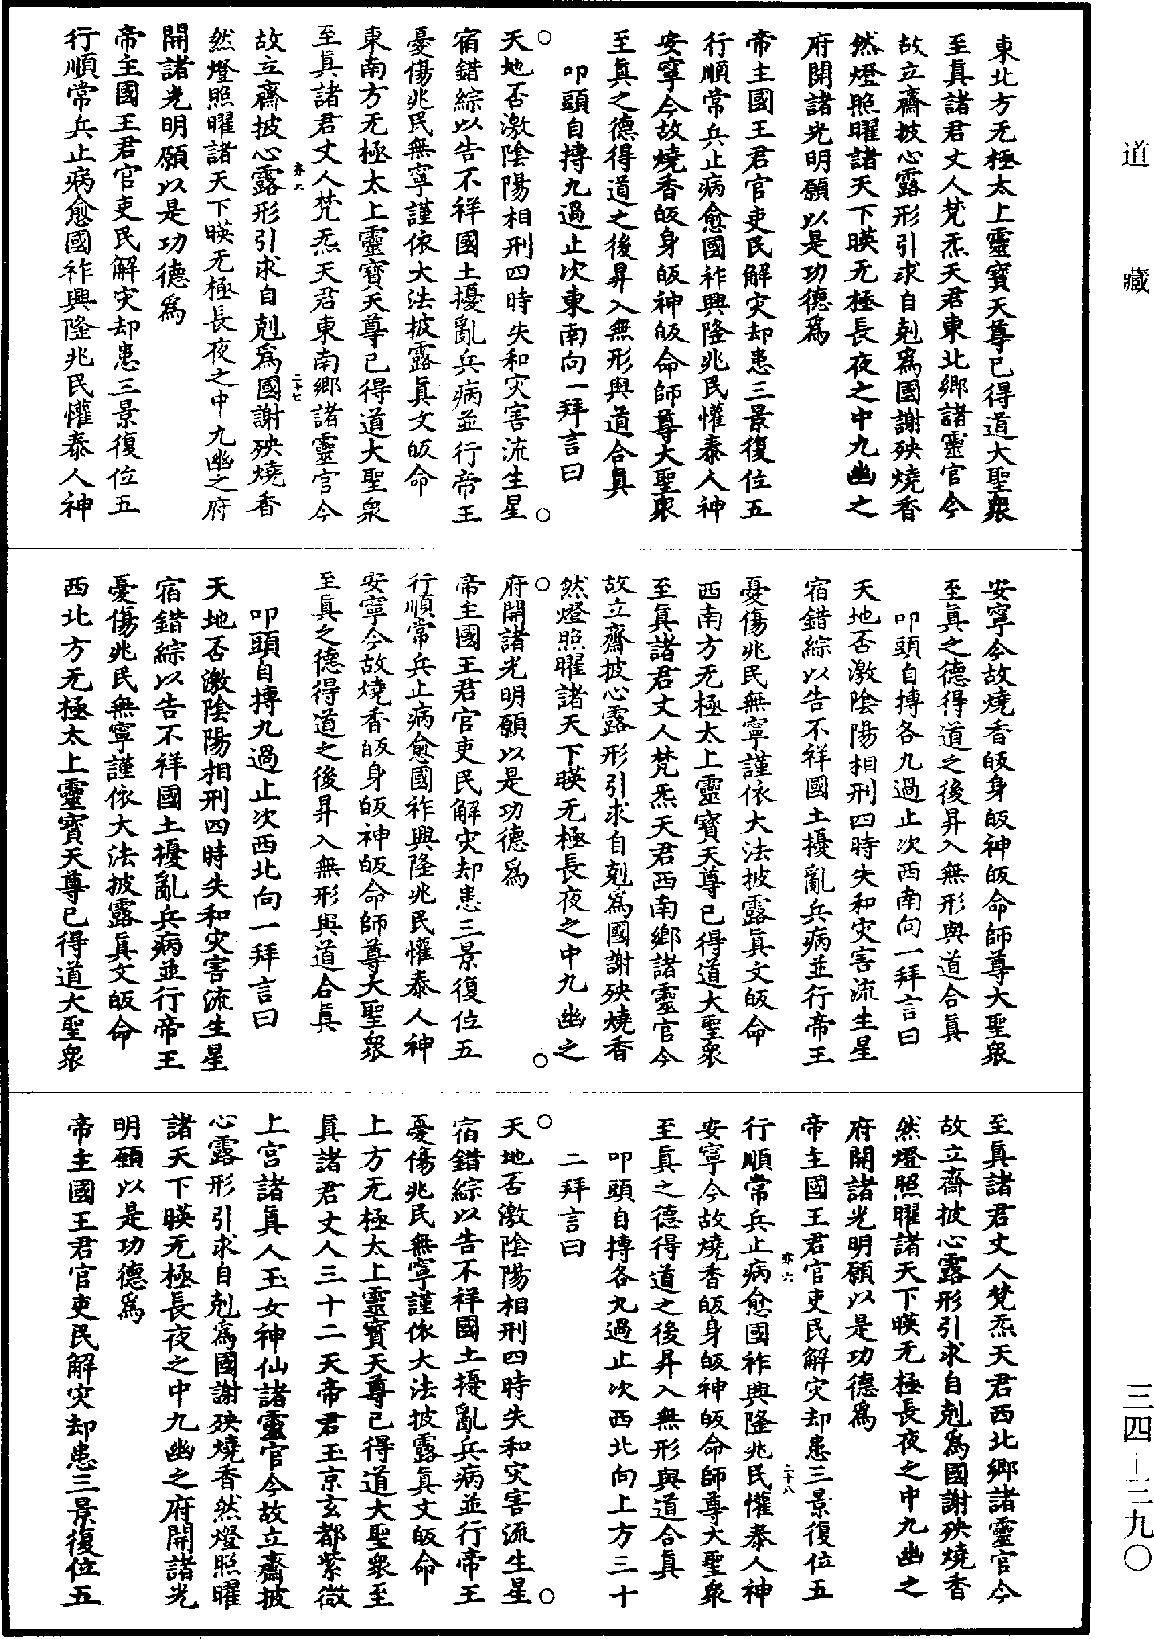 道藏
三四—三九〇
東北方无極太上靈寶天尊已得道大聖衆
至真諸君丈人梵炁天君東北鄉諸靈官今
故立齋披心露形引求自剋為國謝殃燒香
然燈照曜諸天下暎无極長夜之中九幽之
府開諸光明願以是功德為
帝主國王君官吏民解灾却患三景復位五
行順常兵止病愈國祚興隆兆民懽泰人神
安寧今故燒香皈身皈神皈命師尊大聖衆
至真之德得道之後昇入無形與道合真
叩頭自搏九過止次東南向一拜言曰
天地否激陰陽相刑四時失和灾害流生星
宿錯綜以告不祥國土擾亂兵病並行帝王
憂傷兆民無寧謹依大法披露真文皈命
東南方无極太上靈寶天尊已得道大聖衆
至真諸君丈人梵炁天君東南鄉諸靈官今
亦六 二十七
故立齋披心露形引求自剋為國謝殃燒香
然燈照曜諸天下暎无極長夜之中九幽之府
開諸光明願以是功德為
帝主國王君官吏民解灾却患三景復位五
行順常兵止病愈國祚興隆兆民懽泰人神
安寧今故燒香皈身皈神皈命師尊大聖衆
至真之德得道之後昇入無形與道合真
叩頭自搏各九過止次西南向一拜言曰
天地否激陰陽相刑四時失和灾害流生星
宿錯綜以告不祥國土擾亂兵病並行帝王
憂傷兆民無寧謹依大法披露真文皈命
西南方无極太上靈寶天尊已得道大聖衆
至真諸君丈人梵炁天君西南鄉諸靈官今
故立齋披心露形引求自剋為國謝殃燒香
然燈照曜諸天下暎无極長夜之中九幽之
府開諸光明願以是功德為
帝主國王君官吏民解灾却患三景復位五
行順常兵止病愈國祚興隆兆民懽泰人神
安寧今故燒香皈身皈神皈命師尊大聖衆
至真之德得道之後昇入無形與道合真
叩頭自搏九過止次西北向一拜言曰
天地否激陰陽相刑四時失和灾害流生星
宿錯綜以告不祥國土擾亂兵病並行帝王
憂傷兆民無寧謹依大法披露真文皈命
西北方无極太上靈寶天尊已得道大聖衆
至真諸君丈人梵炁天君西北鄉諸靈官今
故立齋披心露形引求自剋為國謝殃燒香
然燈照曜諸天下暎无極長夜之中九幽之
府開諸光明願以是功德為
帝主國王君官吏民解灾却患三景復位五
亦六 二十八
行順常兵止病愈國祚興隆兆民懽泰人神
安寧今故燒香皈身皈神皈命師尊大聖衆
至真之德得道之後昇入無形與道合真
叩頭自搏各九過止次西北向上方三十
二拜言曰
天地否激陰陽相刑四時失和灾害流生星
宿錯綜以告不祥國土擾亂兵病並行帝王
憂傷兆民無寧謹依大法披露真文皈命
上方无極太上靈寶天尊已得道大聖衆至
真諸君丈人三十二天帝君玉京玄都紫微
上宮諸真人玉女神仙諸靈官今故立齋披
心露形引求自剋為國謝殃燒香然燈照曜
諸天下暎无極長夜之中九幽之府開諸光
明願以是功德為
帝主國王君官吏民解灾却患三景復位五